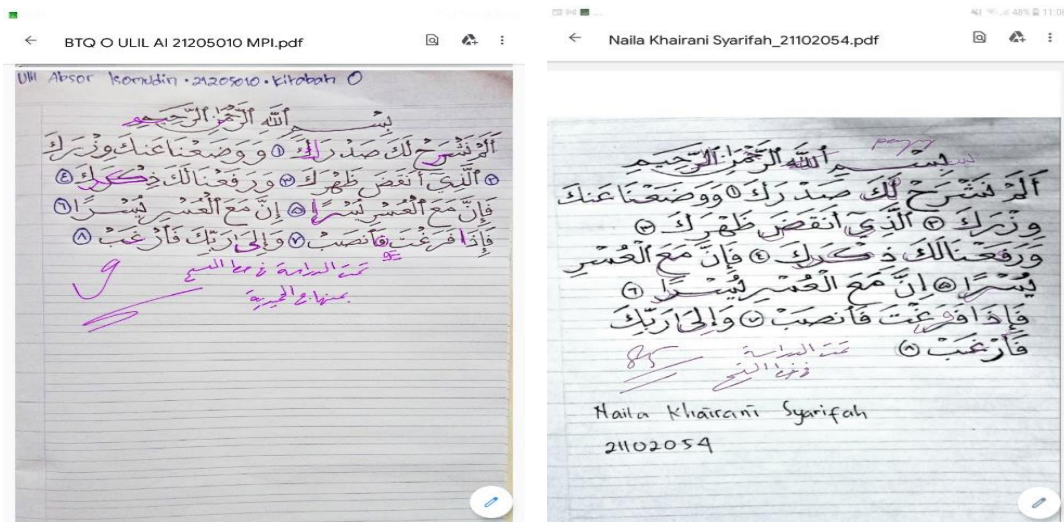 BTQ O ULIL AI 21205010 MPI.pdf
Ulil Absor Isomudin • 21205010 • Kitabah O
بِسْمِ اللَّهِ الرَّحْمَٰنِ الرَّحِيمِ
أَلَمْ نَشْرَحْ لَكَ صَدْرَكَ ١ وَوَضَعْنَا عَنكَ وِزْرَكَ
٢ الَّذِي أَنقَضَ ظَهْرَكَ ٣ وَرَفَعْنَا لَكَ ذِكْرَكَ ٤
فَإِنَّ مَعَ الْعُسْرِ يُسْرًا ٥ إِنَّ مَعَ الْعُسْرِ يُسْرًا ٦
فَإِذَا فَرَغْتَ فَانصَبْ ٧ وَإِلَىٰ رَبِّكَ فَارْغَب ٨
تمت الدراسة في خط النسخ
9
48% 11:06
Naila Khairani Syarifah_21102054.pdf
بِسْمِ اللَّهِ الرَّحْمَٰنِ الرَّحِيمِ
أَلَمْ نَشْرَحْ لَكَ صَدْرَكَ ١ وَوَضَعْنَا عَنكَ
وِزْرَكَ ٢ الَّذِي أَنقَضَ ظَهْرَكَ ٣
وَرَفَعْنَا لَكَ ذِكْرَكَ ٤ فَإِنَّ مَعَ الْعُسْرِ
يُسْرًا ٥ إِنَّ مَعَ الْعُسْرِ يُسْرًا ٦
فَإِذَا فَرَغْتَ فَانصَبْ ٧ وَإِلَىٰ رَبِّكَ
فَارْغَبْ ٨
تمت الدراسة
في خط النسخ
85
Naila Khairani Syarifah
21102054